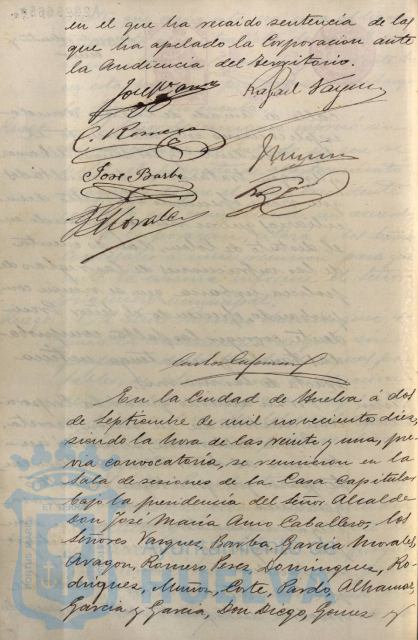 en el que ha recaido sentencia de las
que ha apelado la Corporacion ante
la Audiencia del territorio.
Rafael Vazquez
C. Romero
José Barba
G Morales
En la Ciudad de Huelva á dos
de Septiembre de mil novecientos diez,
siendo la hora de las veinte y una, pré-
via convocatoria, se reunieron en la
Sala de sesiones de la Casa Capitular
bajo la presidencia del Señor Alcalde
Don José María Amo Caballero, los
Señores Vazquez, Barba, Garcia Morales,
Aragon, Romero Perez, Dominguez, Ro-
driguez, Muñoz, Corte, Pardo, Alhamar,
Garcia y Garcia, Don Diego, Gomez y